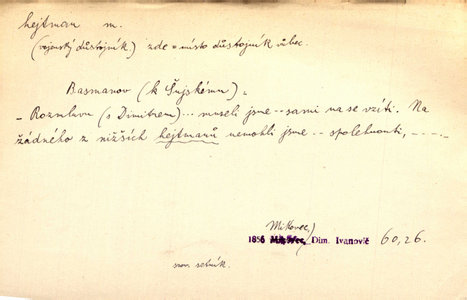 hejtman m.
(vojenský důstojník) zde = místo důstojník vůbec.
Basmanov (k Šujskému) „
– Rozmluvu (s Dimitrem)... museli jsme -- sami na se vzíti. Na
žádného z nižších hejtmanů nemohli jsme -- spolehnouti, -- --.
Mikovec,
1856 Mikovec, Dim. Ivanovič 60, 26.
srov. setník.